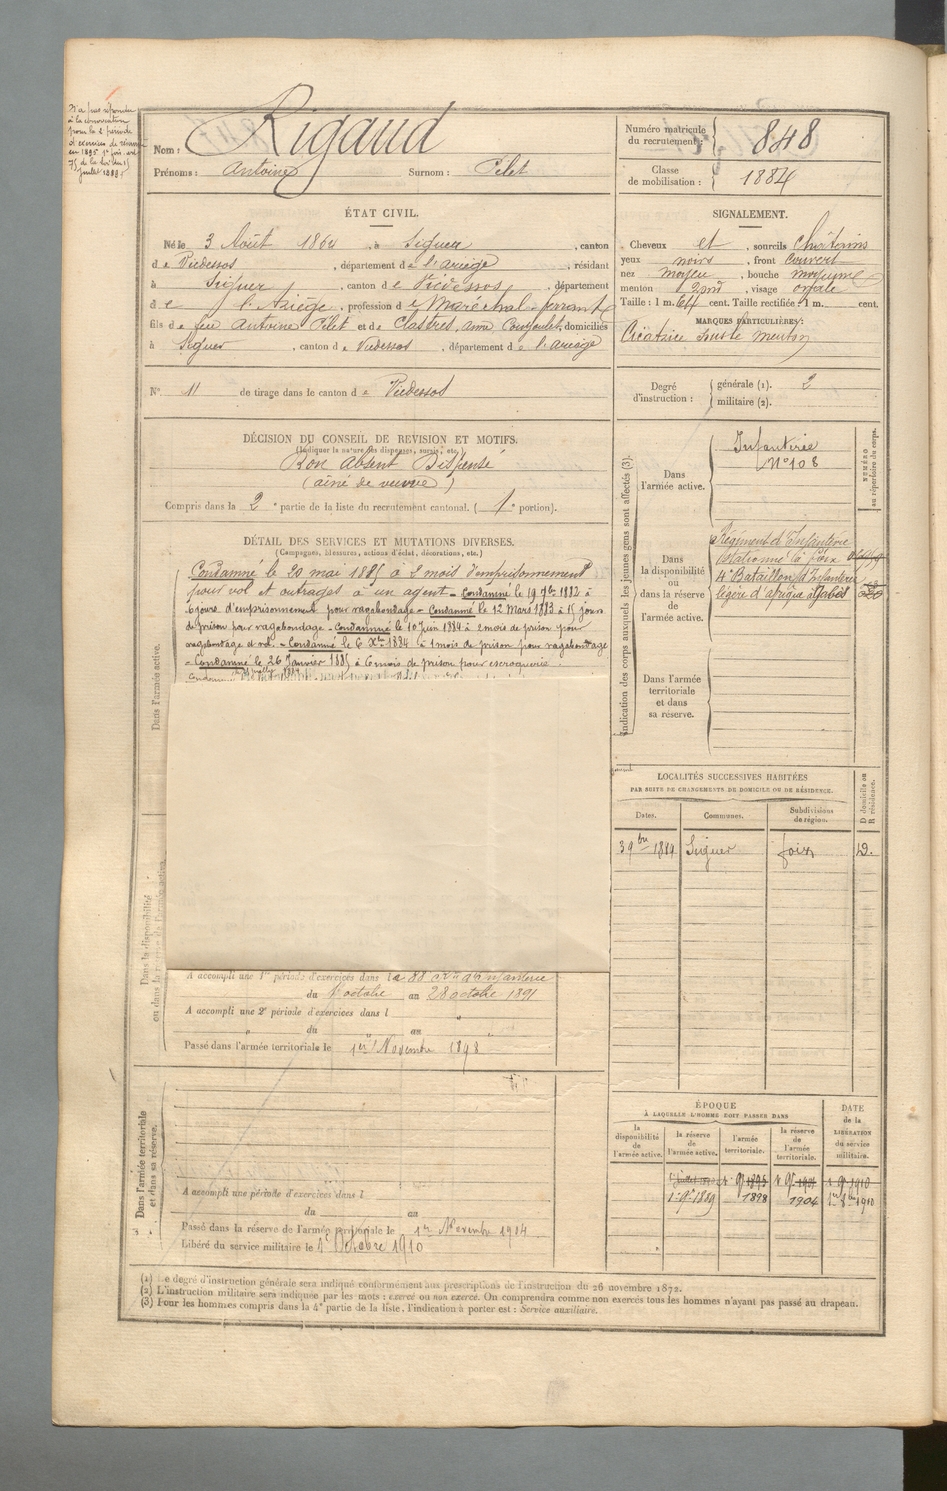 N'a pas répondu
à la convocation
pour la 2e période
d'exercices de réserve
en 1895 1re fois. art.
75 de la loi du 15
juillet 1889
Nom : Rigaud
Prénoms : Antoine Surnom : Pélet
Numéro matricule
du recrutement : 848
Classe
de mobilisation : 1884
ÉTAT CIVIL.
Né le 3 Août 1864, à Siguer, canton
de Vicdessos, département de l'ariège, résidant
à Siguer, canton de Vicdessos, département
de l'Ariège, profession de Maréchal-ferrant
fils de feu Antoine Pélet et de Clastres, anne, domiciliés
à Siguer, canton de Vicdessos, département de l'ariège
N° 11 de tirage dans le canton de Vicdessos
SIGNALEMENT.
Cheveux et, sourcils Châtains
yeux noirs, front couvert
nez moyen, bouche moyenne
menton rond, visage ovale
Taille : 1 m. 64 cent. Taille rectifiée : 1 m. cent.
MARQUES PARTICULIÈRES :
Cicatrice sous le menton
Degré
d'instruction :
générale (1). 2
militaire (2).
DÉCISION DU CONSEIL DE REVISION ET MOTIFS.
(Indiquer la nature des dispenses, sursis, etc.)
Bon absent Dispensé
(ainé de veuve)
Compris dans la 2e partie de la liste du recrutement cantonal. (1e portion).
DÉTAIL DES SERVICES ET MUTATIONS DIVERSES.
(Campagnes, blessures, actions d'éclat, décorations, etc.)
Dans l'armée active.
Condamné le 20 mai 1885 à 2 mois d'emprisonnement
pour vol et outrages à un agent - Condamné le 19 7bre 1882 à
6 jours d'emprisonnement pour vagabondage - Condamné le 12 Mars 1883 à 15 jours
de prison pour vagabondage - Condamné le 10 Juin 1884 à 2 mois de prison pour
vagabondage - Condamné le 6 Xbre 1884 à 1 mois de prison pour vagabondage
- Condamné le 26 Janvier 1885 à 6 mois de prison pour escroquerie -
Dans la disponibilité
ou dans la réserve de l'armée active.
A accompli une 1re période d'exercices dans le 88e d'infanterie
du 1 octobre au 28 octobre 1891
A accompli une 2e période d'exercices dans l "
" du " au "
Passé dans l'armée territoriale le 1er Novembre 1898
Dans l'armée territoriale
et dans sa réserve.
A accompli une période d'exercices dans l
du au
Passé dans la réserve de l'armée territoriale le 1er Novembre 1904
Libéré du service militaire le 1er Octobre 1910
Indication des corps auxquels les jeunes gens sont affectés (3).
NUMÉRO
au répertoire du corps.
Dans
l'armée active.
Infanterie
N° 108
Dans
la disponibilité
ou
dans la réserve
de
l'armée active.
Régiment d'Infanterie
stationné à Foix
4e Bataillon d'Infanterie
légère d'afrique à Gabès
Dans l'armée
territoriale
et dans
sa réserve.
LOCALITÉS SUCCESSIVES HABITÉES
PAR SUITE DE CHANGEMENTS DE DOMICILE OU DE RÉSIDENCE.
D domicile ou
R résidence.
Dates. Communes. Subdivisions
de région.
3 9bre 1889 Siguer foix D.
ÉPOQUE
À LAQUELLE L'HOMME DOIT PASSER DANS
DATE
de la
LIBÉRATION
du service
militaire.
la
disponibilité
de
l'armée active.
la réserve
de
l'armée active.
l'armée
territoriale.
la réserve
de
l'armée
territoriale.
1895 1901 1910
1889 1898 1904 1910
(1) Le degré d'instruction générale sera indiqué conformément aux prescriptions de l'instruction du 26 novembre 1872.
(2) L'instruction militaire sera indiquée par les mots : exercé ou non exercé. On comprendra comme non exercés tous les hommes n'ayant pas passé au drapeau.
(3) Pour les hommes compris dans la 4e partie de la liste, l'indication à porter est : Service auxiliaire.